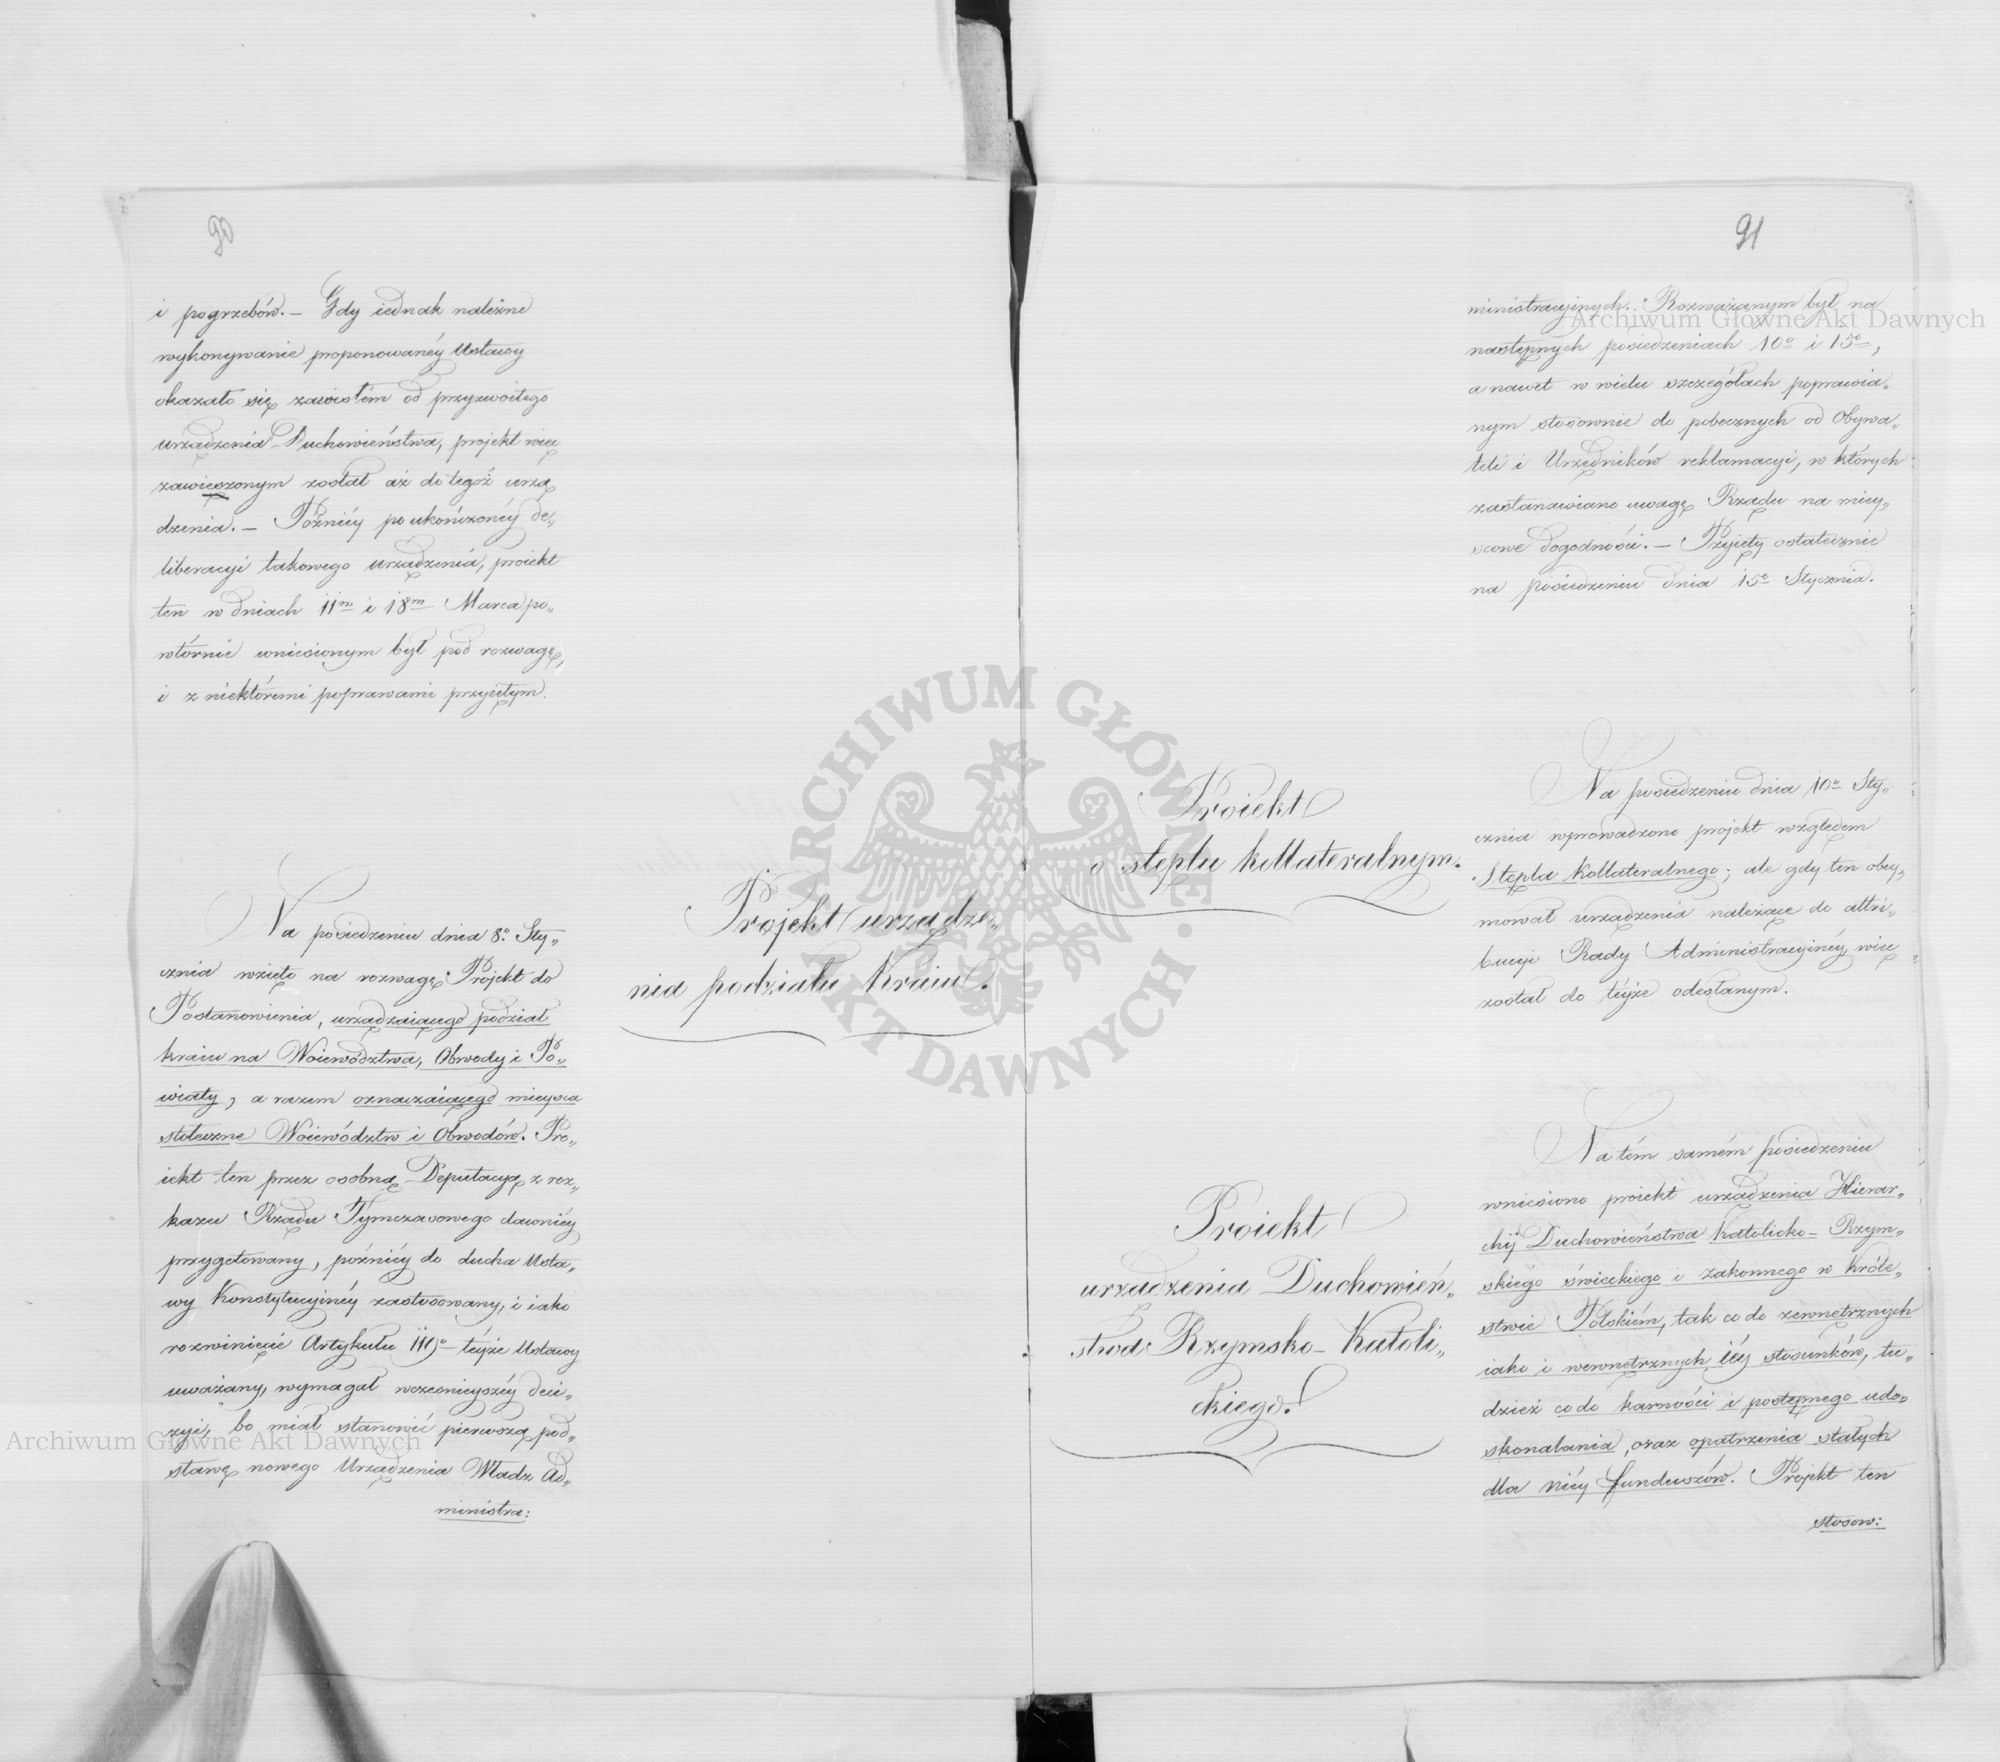 90
i pogrzebów. — Gdy iednak należne
wykonywanie proponowanéy Ustawy
okazało się zawisłém od przyzwoitego
urządzenia Duchowieństwa, projekt więc
zawieszonym został aż do tegoż urzą
dzenia. — Późniéy po ukończonéy de„
liberacyi takowego urządzenia, proiekt
ten w dniach 11m i 18m Marca po„
wtórnie wniesionym był pod rozwagę,
i z niektóremi poprawami przyiętym.
Projekt urządze„
nia podziału Kraiu.
Na posiedzeniu dnia 8o Sty„
cznia wzięto na rozwagę Projekt do
Postanowienia, urządzaiącego podział
kraiu na Woiewództwa, Obwody i Po„
wiaty, a razem oznaczaiącego mieysca
stołeczne Woiewództw i Obwodów. Pro„
iekt ten przez osobną Deputacyą z roz„
kazu Rządu Tymczasowego dawniéy
przygotowany, późniéy do ducha Usta„
wy Konstytucyinéy zastosowany, i iako
rozwinięcie Artykułu iiigo téyże Ustawy
uważany, wymagał wcześnieyszéy decy„
zyi, bo miał stanowić pierwszą pod„
stawę nowego Urządzenia Władz Ad„
ministra:
91
ministracyinych. Rozważanym był na
następnych posiedzeniach 10o i 15o,
a nawet w wielu szczegółach poprawia„
nym stosownie do pobocznych od Obywa„
teli i Urzędników reklamacyi, w których
zastanawiano uwagę Rządu na miey„
scowe dogodności. — Przyięty ostatecznie
na posiedzeniu dnia 15o Stycznia.
Proiekt
o steplu kollateralnym.
Na posiedzeniu dnia 10o Sty„
cznia wprowadzono projekt względem
Stepla kollateralnego; ale gdy ten obey„
mował urządzenia należące do attri„
bucyi Rady Administracyinéy, więc
został do téyże odesłanym.
Proiekt
urządzenia Duchowień„
stwa Rzymsko-Katoli„
ckiego.
Na tém samém posiedzeniu
wniesiono proiekt urządzenia Hierar„
chij Duchowieństwa Katolicko-Rzym„
skiego świeckiego i zakonnego w Króle„
stwie Polskiém, tak co do zewnętrznych
iako i wewnętrznych iéy stosunków, tu„
dzież co do karności i postępnego udo„
skonalania, oraz opatrzenia stałych
dla niéy funduszów. Projekt ten
stosow:
Archiwum Główne Akt Dawnych
ARCHIWUM GŁÓWNE AKT DAWNYCH
Archiwum Główne Akt Dawnych